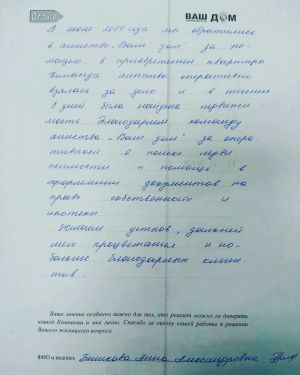 ВАШ ДОМ
В июне 2019 года мы обратились
в агенство „Ваш дом" за по-
мощью в приобретении квартиры
Команда агенства оперативно
взялась за дело и в течении
8 дней была найдена недвижи-
мость Благодарим команду
агенства „Ваш дом" за опера-
тивность в поиске недви
жимости и помощь в
оформлении документов на
право собственности и
ипотеки.
Желаем успехов, дальней
шего процветания и по-
больше благодарных клиен-
тов.
Ваше мнение особенно важно для тех, кто решает можно ли доверять
нашей Компании и мне лично. Спасибо за оценку нашей работы в решении
Вашего жилищного вопроса.
ФИО и подпись Анна Александровна